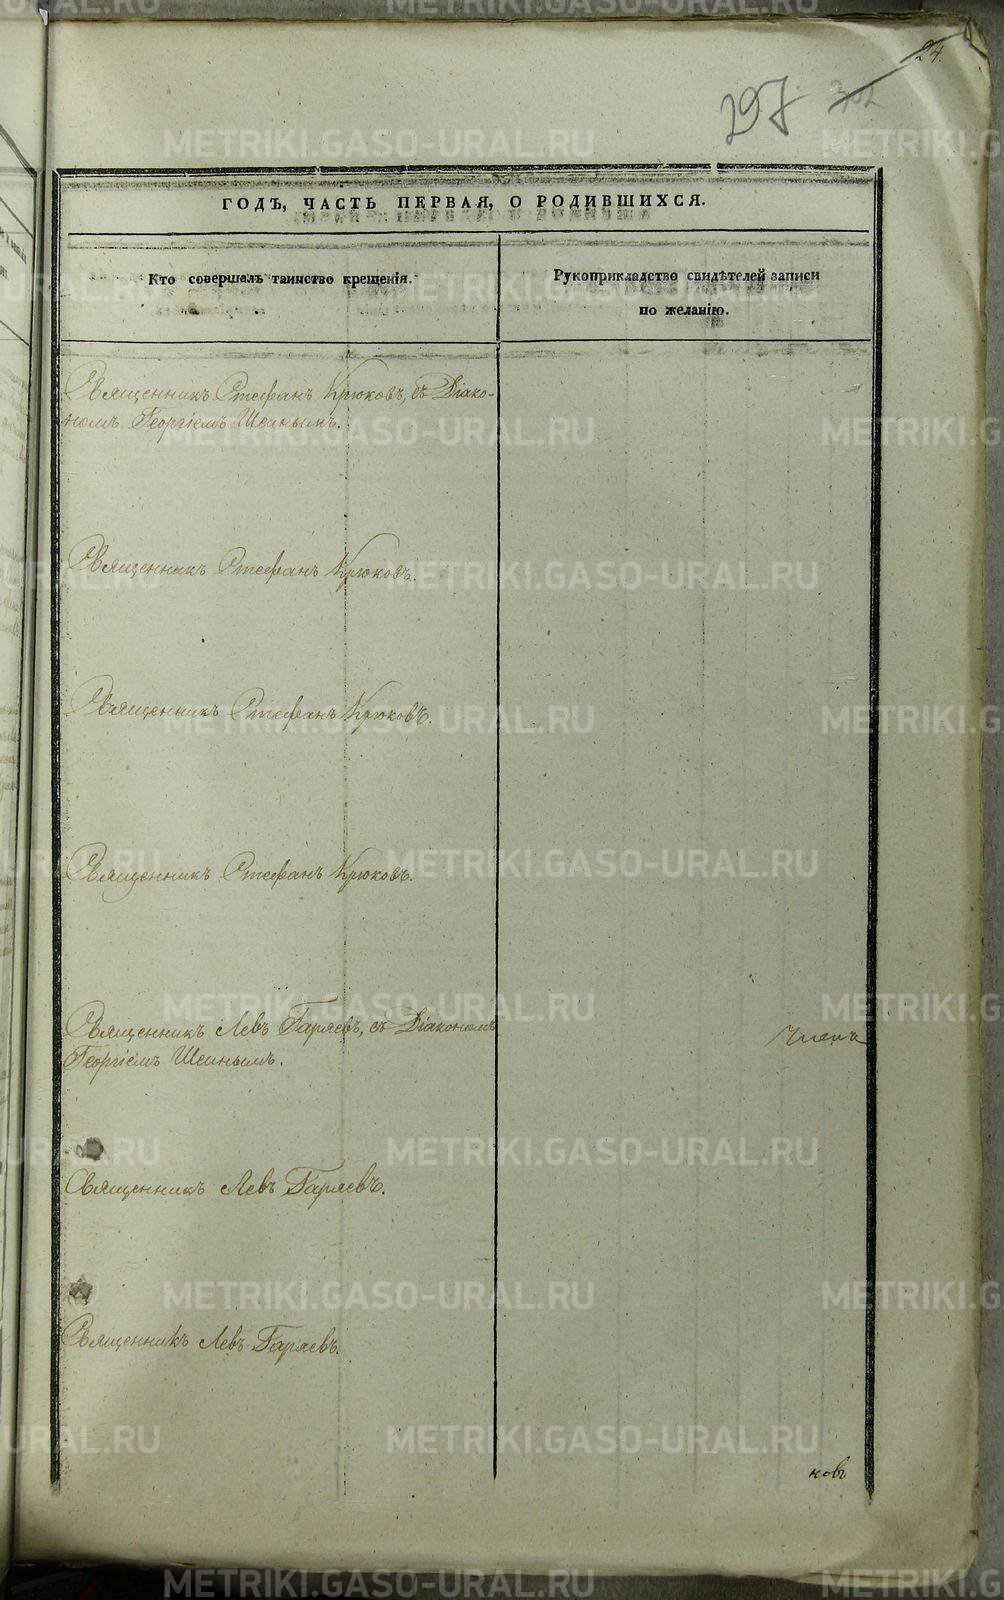 24.
297
ГОДЪ, ЧАСТЬ ПЕРВАЯ, О РОДИВШИХСЯ.
Кто совершалъ таинство крещенія.
Рукоприкладство свидѣтелей записи
по желанію.
Священникъ Стефанъ Крюковъ, съ Діако-
номъ Георгіемъ Шеинымъ.
Священникъ Стефанъ Крюковъ.
Священникъ Стефанъ Крюковъ.
Священникъ Стефанъ Крюковъ.
Священникъ Левъ Гаряевъ, съ Діакономъ
Георгіемъ Шеинымъ.
Священникъ Левъ Гаряевъ.
Священникъ Левъ Гаряевъ.
новъ
METRIKI.GASO-URAL.RU